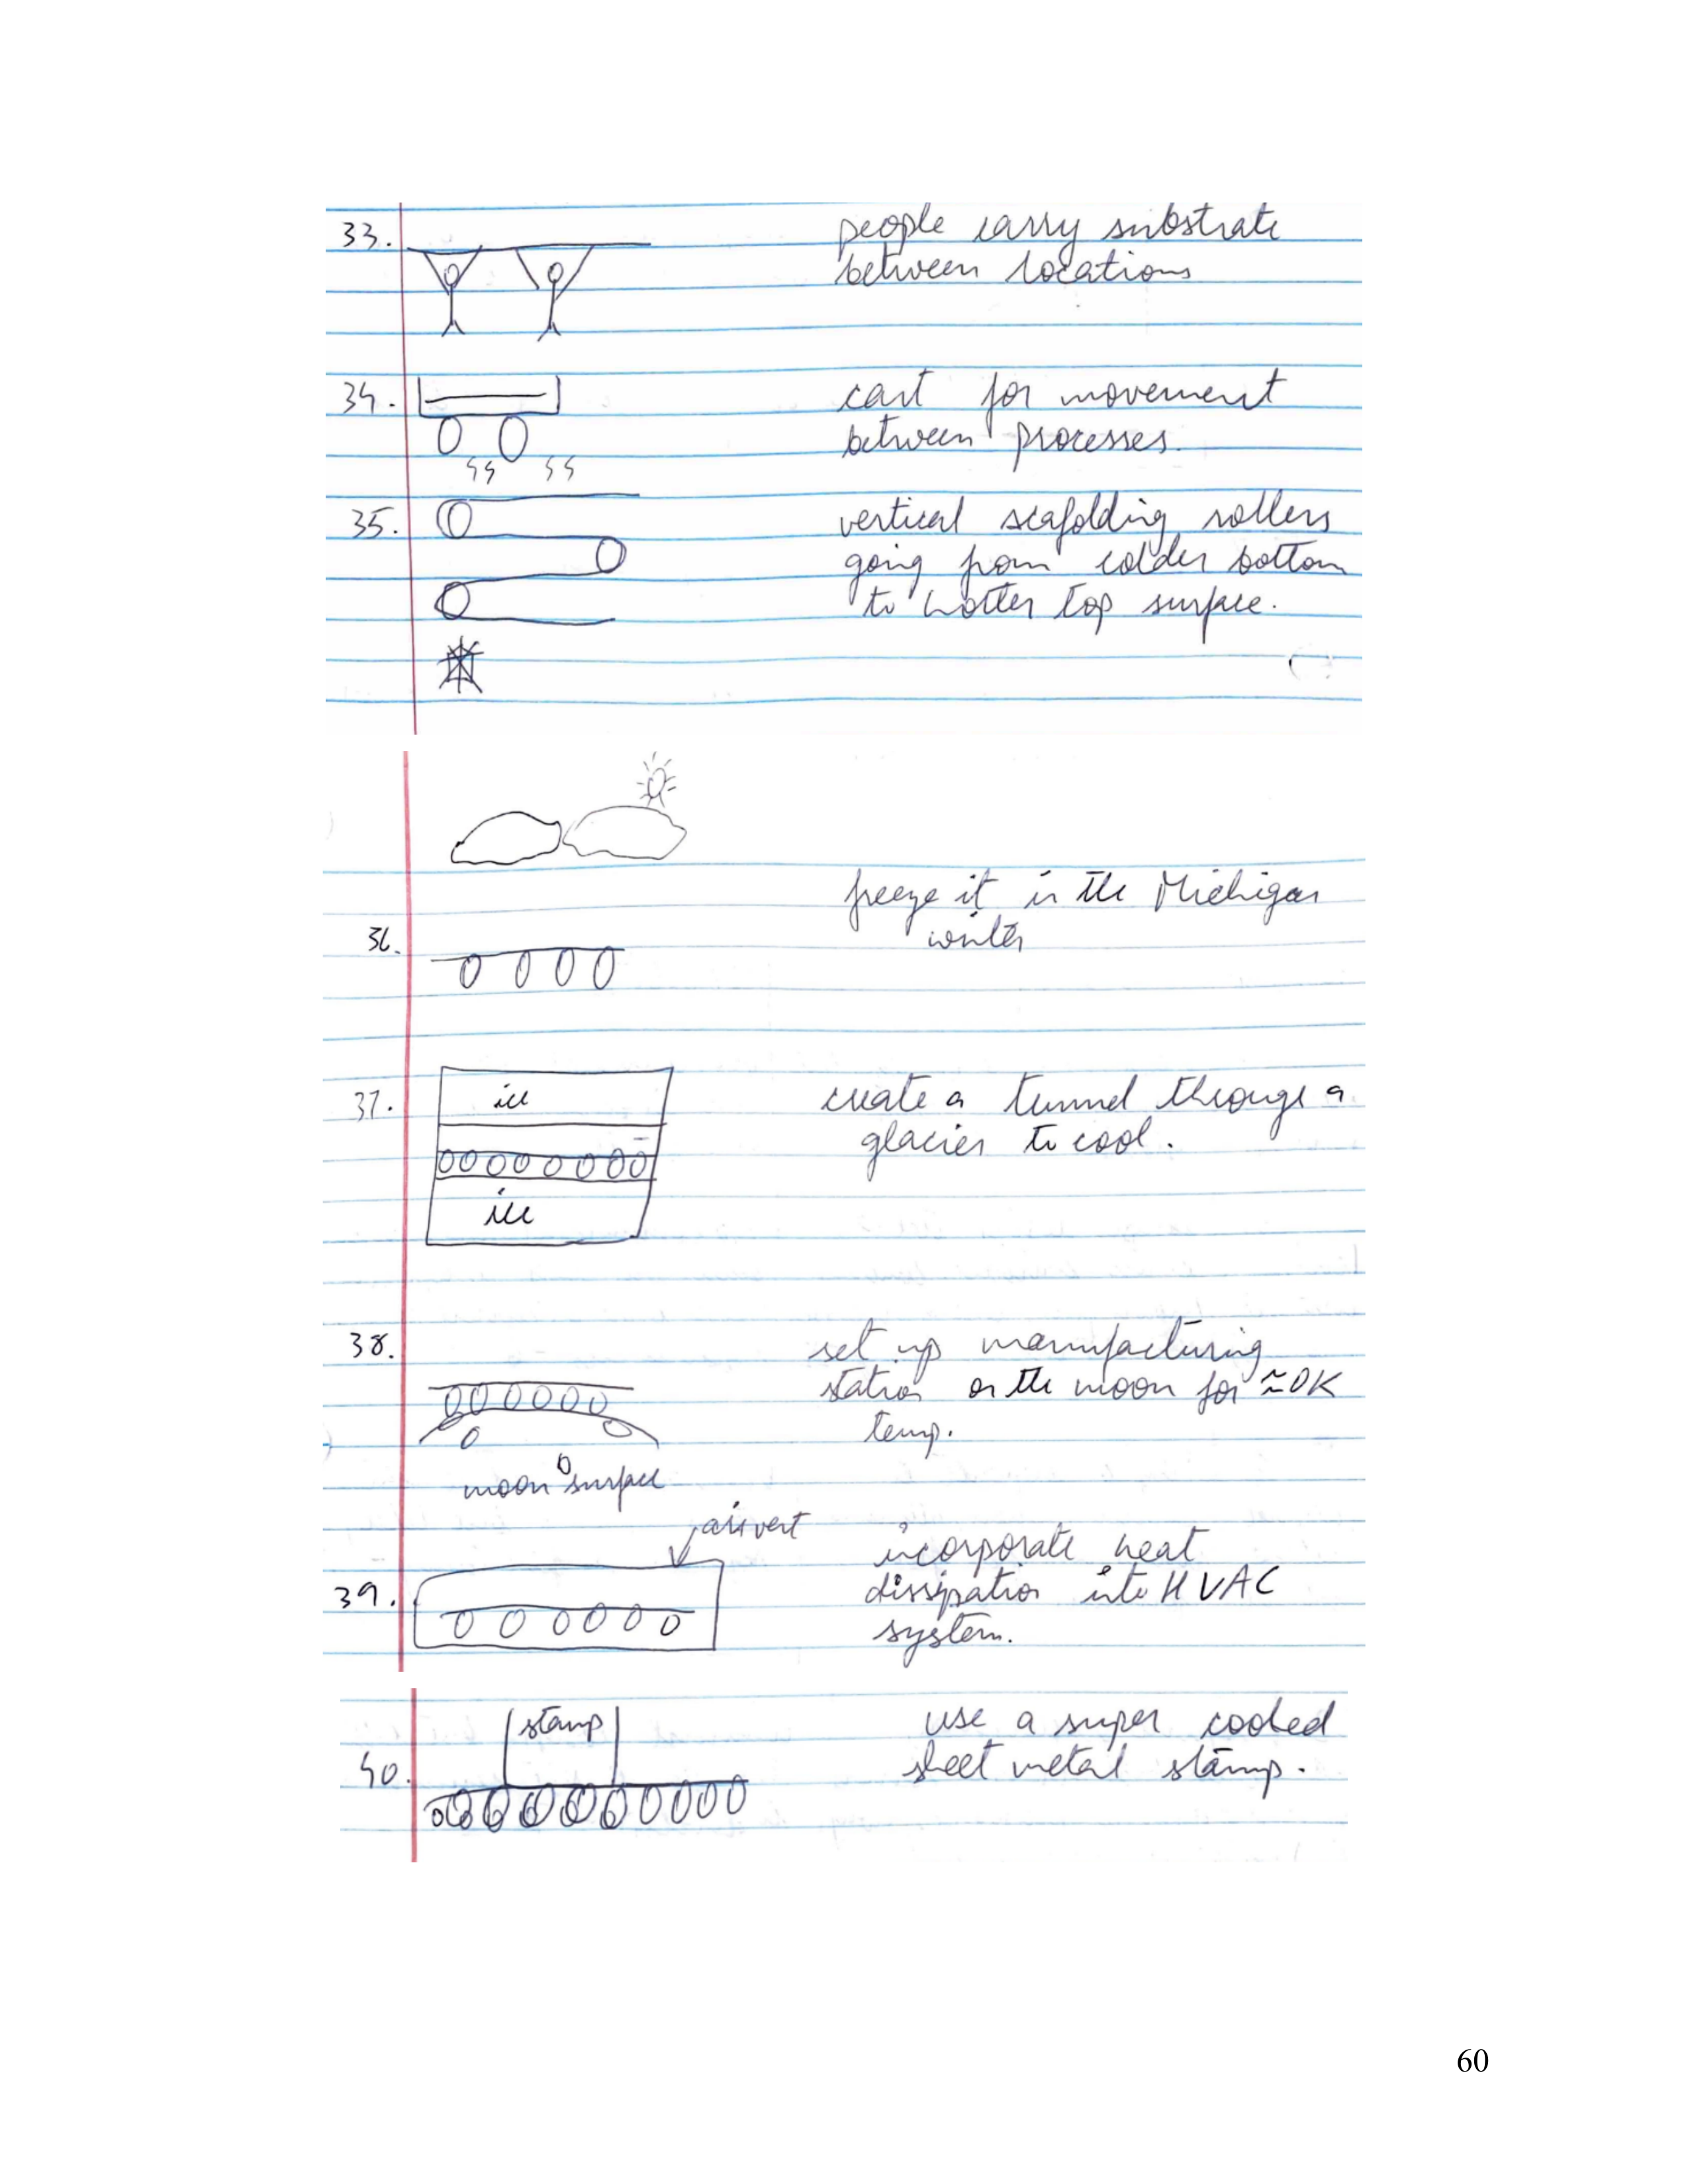 33.
people carry substrate
between locations
34.
cart for movement
between processes.
35.
vertical scafolding rollers
going from colder bottom
to hotter top surface.
freeze it in the Michigan
36.
winter
37.
ice
create a tunnel through a
glacier to cool.
ice
38.
set up manufacturing
station on the moon for ≈0K
temp.
moon surface
air vent
incorporate heat
39.
dissipation into HVAC
system.
stamp
use a super cooled
40.
sheet metal stamp.
60